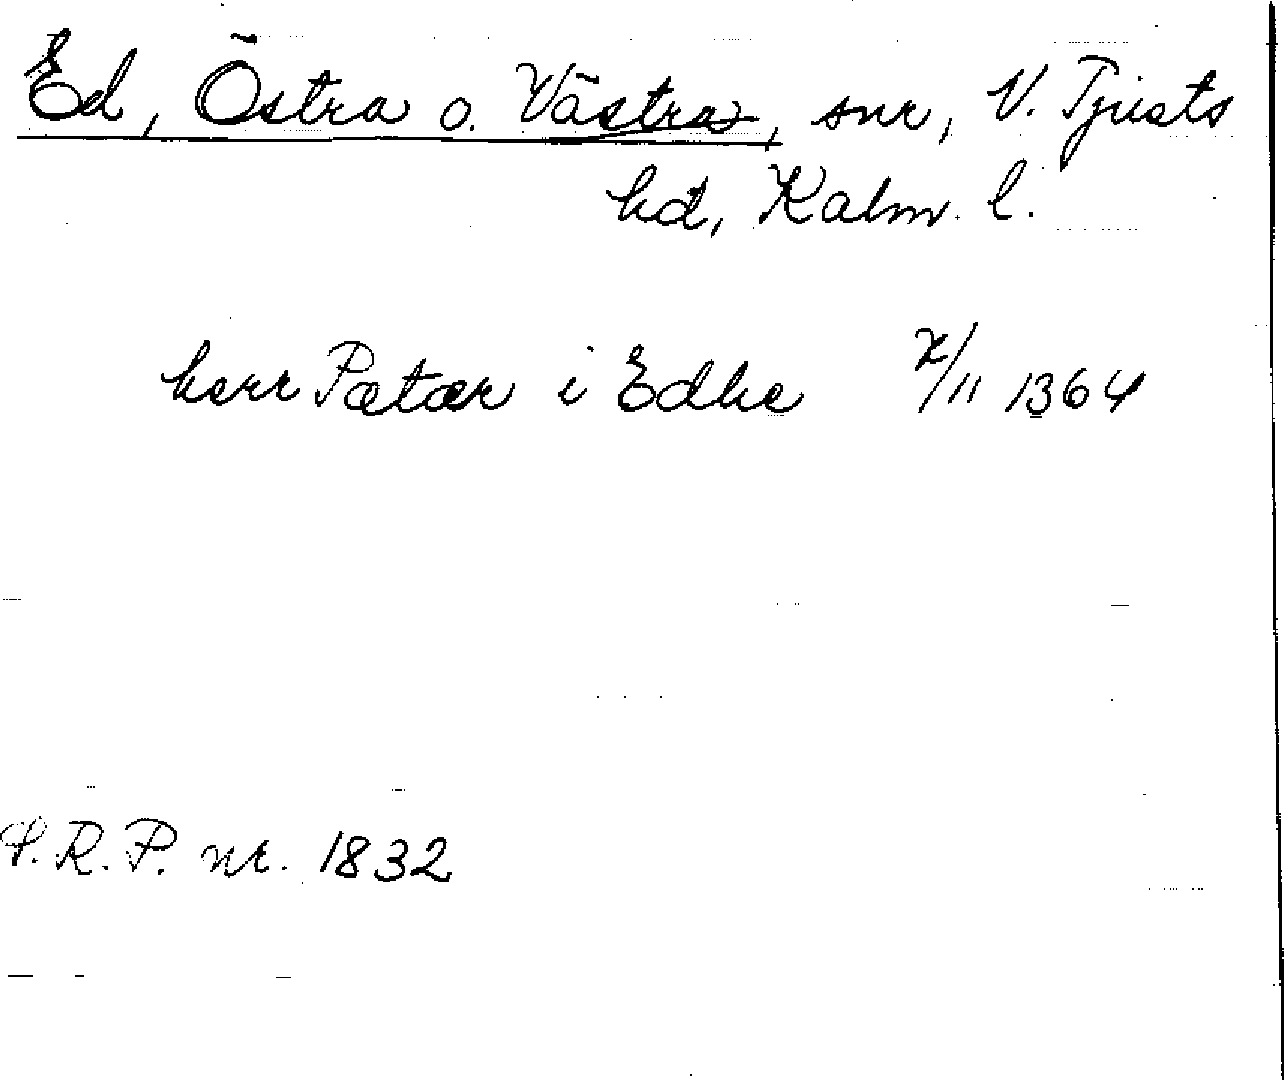 Ed, Östra o. Västra, snr, V. Tjusts
hd, Kalm. l.
herr Pætær i Edhe /11 1364
S.R.P. nr. 1832